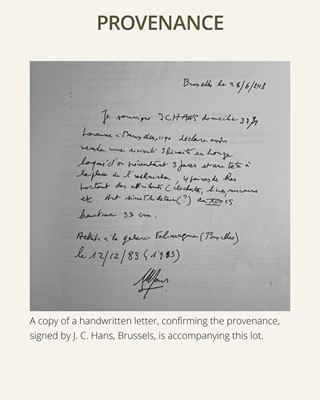 PROVENANCE
Bruxelles le 28/6/2018
Je soussigné J C HANS domicilié
à Bruxelles, 1190 déclare avoir
vendu une divinité tibétaine en bronze
laqué d'or présentant 3 faces et une tête à
la place de l'
portant des attributs (clochette,
Art sino Tibétain (?)
hauteur 33 cm.
Acheté à la galerie (Bruxelles)
le 12/12/83 (1983)
A copy of a handwritten letter, confirming the provenance,
signed by J. C. Hans, Brussels, is accompanying this lot.